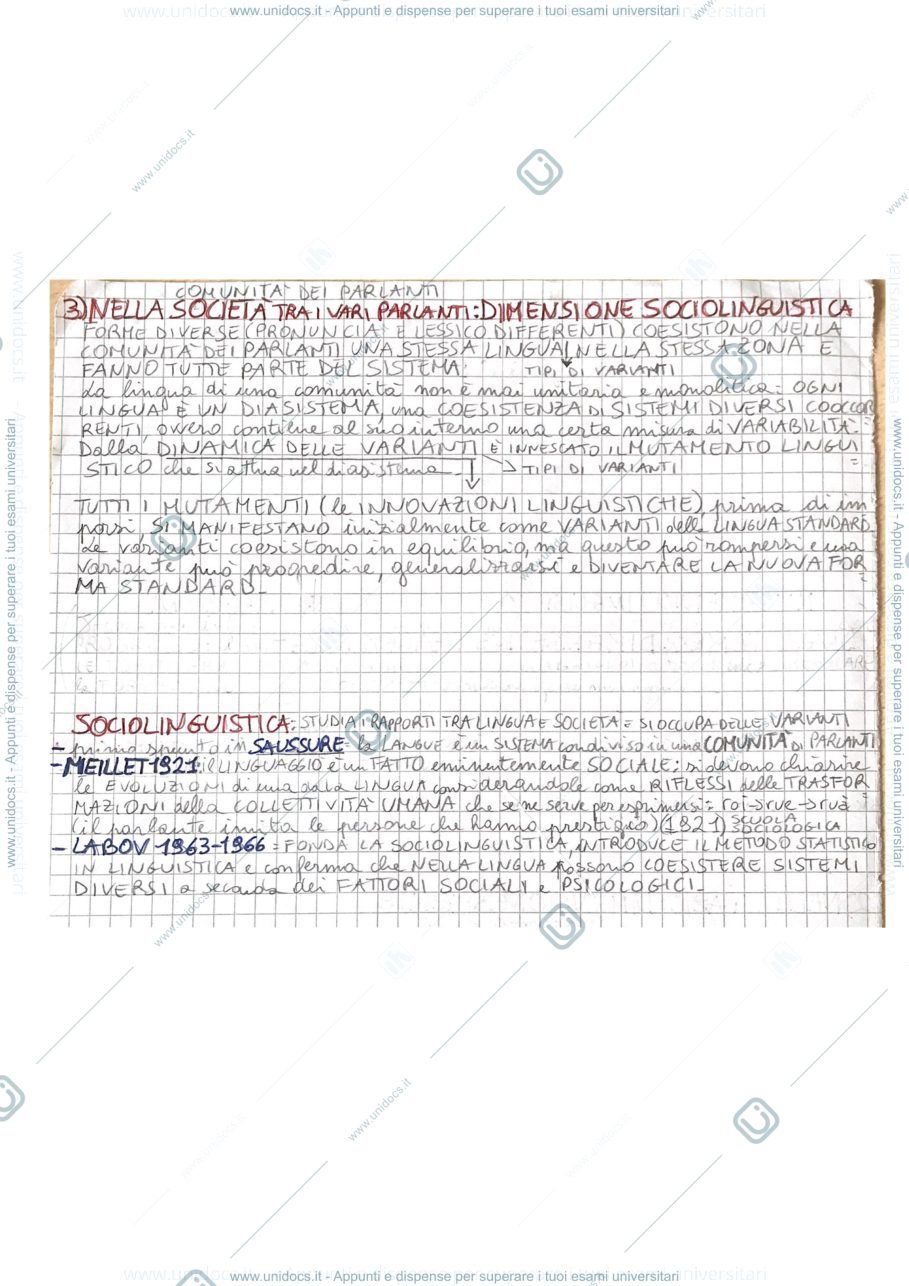 www.unidocs.it - Appunti e dispense per superare i tuoi esami universitari
COMUNITA' DEI PARLANTI
3) NELLA SOCIETÀ TRA I VARI PARLANTI: DIMENSIONE SOCIOLINGUISTICA
FORME DIVERSE (PRONUNCIA E LESSICO DIFFERENTI) COESISTONO NELLA
COMUNITÀ DEI PARLANTI UNA STESSA LINGUA NELLA STESSA ZONA E
FANNO TUTTE PARTE DEL SISTEMA. TIPI DI VARIANTI
La lingua di una comunità non è mai unitaria e monolitica: OGNI
LINGUA È UN DIASISTEMA, una COESISTENZA DI SISTEMI DIVERSI COOCCOR
RENTI, ovvero contiene al suo interno una certa misura di VARIABILITÀ.
Dalla DINAMICA DELLE VARIANTI È INNESCATO IL MUTAMENTO LINGUI
STICO che si attua nel diasistema → TIPI DI VARIANTI
TUTTI I MUTAMENTI (le INNOVAZIONI LINGUISTICHE), prima di im
porsi, SI MANIFESTANO inizialmente come VARIANTI della LINGUA STANDARD.
Le varianti coesistono in equilibrio, ma questo può rompersi e una
variante può progredire, generalizzarsi e DIVENTARE LA NUOVA FOR
MA STANDARD.
SOCIOLINGUISTICA: STUDIA I RAPPORTI TRA LINGUA E SOCIETÀ = SI OCCUPA DELLE VARIANTI
- primo spunto in SAUSSURE: la LANGUE è un SISTEMA condiviso in una COMUNITÀ DI PARLANTI
- MEILLET 1921: il LINGUAGGIO è un FATTO eminentemente SOCIALE; si devono chiarire
le EVOLUZIONI di una data LINGUA considerandole come RIFLESSI delle TRASFOR
MAZIONI della COLLETTIVITÀ UMANA che se ne serve per esprimersi: roi → rue → ruà
(il parlante imita le persone che hanno prestigio) (1921) SCUOLA SOCIOLOGICA
- LABOV 1963-1966 = FONDA LA SOCIOLINGUISTICA, INTRODUCE IL METODO STATISTICO
IN LINGUISTICA e conferma che NELLA LINGUA possono COESISTERE SISTEMI
DIVERSI a seconda dei FATTORI SOCIALI e PSICOLOGICI.
www.unidocs.it - Appunti e dispense per superare i tuoi esami universitari